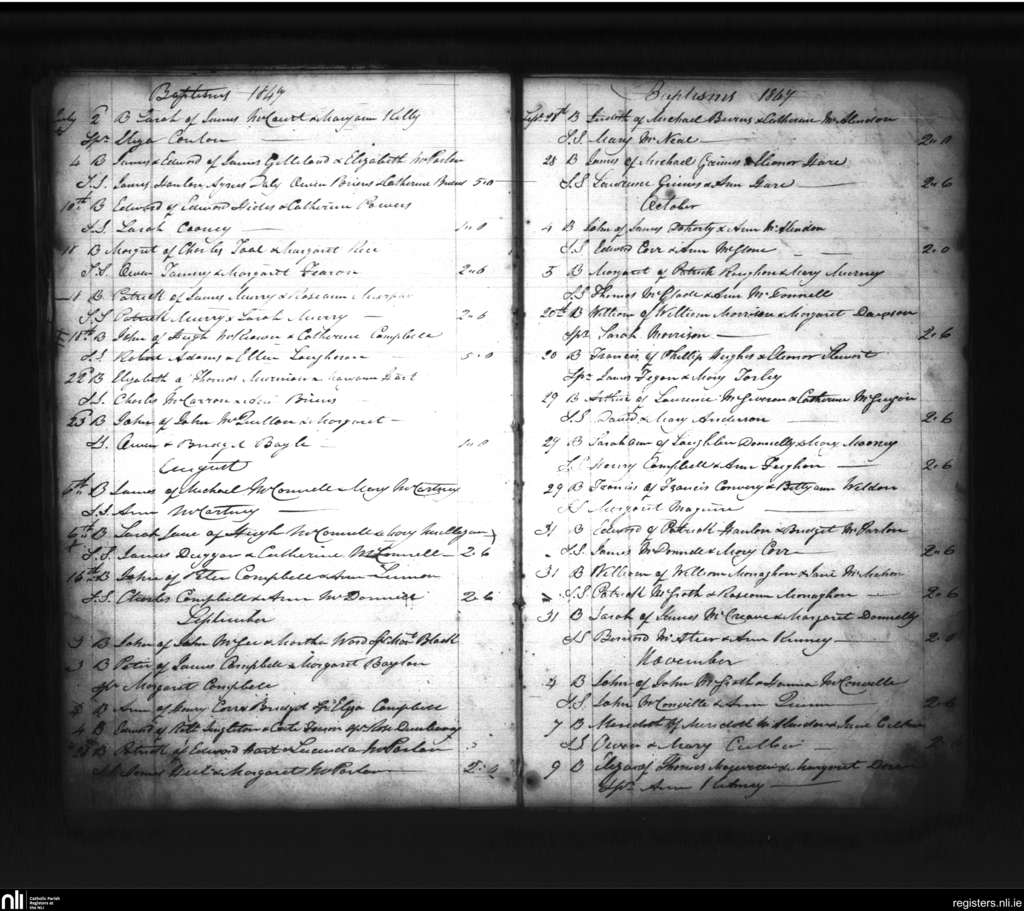 Baptisms 1847
July 2 B Sarah of James McCourt & Maryann Kelly
Spr Eliza Conlon
4 B James & Edward of James Gilleland & Elizabeth McParlan
S.S. James Hanlon Agnes Daly Owen Briens & Catherine Briens 5-0
10th B Edward of Edward & Catherine Powers
S.S. Sarah Cooney
11 B Margret of Charles Toal & Margaret Rice
S.S. Owen & Margaret Fearon 2-6
11 B Patrick of James Murry & Roseann
S.S Patrick Murry & Sarah Murry 2-6
18th B John of Hugh McKeown & Catherine Campbell
S.S. Robert Adams & Ellen Loughran 5-0
22d B Elizabeth of Thomas & Hart
S.S. Charles McCarron & Briens
25 B John of John McQuillan & Margaret
SS. Owen & Bridget Boyle
August
5th B James of Michael McConnell & Mary McCartney
S.S. Ann McCartney
6th B Sarah Jane of Hugh McConnell & Mary Mulligan
S.S. James Duggan & Catherine McConnell 2-6
16th B John of Peter Campbell & Ann Lennon
S.S. Charles Campbell & Ann McDonnell 2-6
September
3 B John of John McGee & Martha Wood Black
3 B Peter of James Campbell & Margaret Boylan
Spr Margaret Campbell
4 B Ann of Henry Corr & Bridget Eliza Campbell
4 B Edward of Singleton & Fearon
B Patrick of Edward Hart & Lucinda McParlan
SS James Hart & Margaret McParlan
Baptisms 1847
Sept 28th B Judith of Michael Burns & Catherine McAlindon
S.S. Mary McNeal 2-0
28 B James of Michael Grimes & Eleonor Hare
S.S Lawrence Grimes & Ann Hare 2-6
October
4 B John of James Doherty & Ann McAlindon
S.S Edward Corr & Ann McGlone 2-0
5 B Margaret of Patrick Roughan & Mary Murney
S.S Thomas McGlade & Ann McDonnell
20th B William of William Morrison & Margaret Dawson
Spr Sarah Morrison 2-6
20 B Francis of Phillip Hughes & Eleonor Stewart
Spr James Fegan & Mary Torley
29 B Arthur of Laurence McGiveron & Catherine McGuigan
S.S David & Mary Anderson 2-6
29 B Sarah ann of Laughlin Donnelly & Mary Mooney
S.S Henry Campbell & Ann 2-6
29 B Francis of Francis Convery & Bettyann Weldon
SS Margaret Maguire
31 B Edward of Patrick Hanlon & Bridget McParlan
S.S. James McDonnell & Mary Corr 2-6
31 B William of William Monaghan & Jane McMahon
S.S Patrick McGrath & Roseann Monaghan 2-6
31 B Sarah of James McCreanor & Margaret Donnelly
SS Bernard McAteer & Ann Kenney 2-0
November
4 B John of John McGrath & McConville
S.S. John McConville & Ann Quinn 2-6
7 B Meredith of Meredith & Jane Cullen
S.S Owen & Mary Cullen
9 B Eliza of Thomas & Margaret
Spr Ann
nli
Catholic Parish
Registers at
the NLI
registers.nli.ie